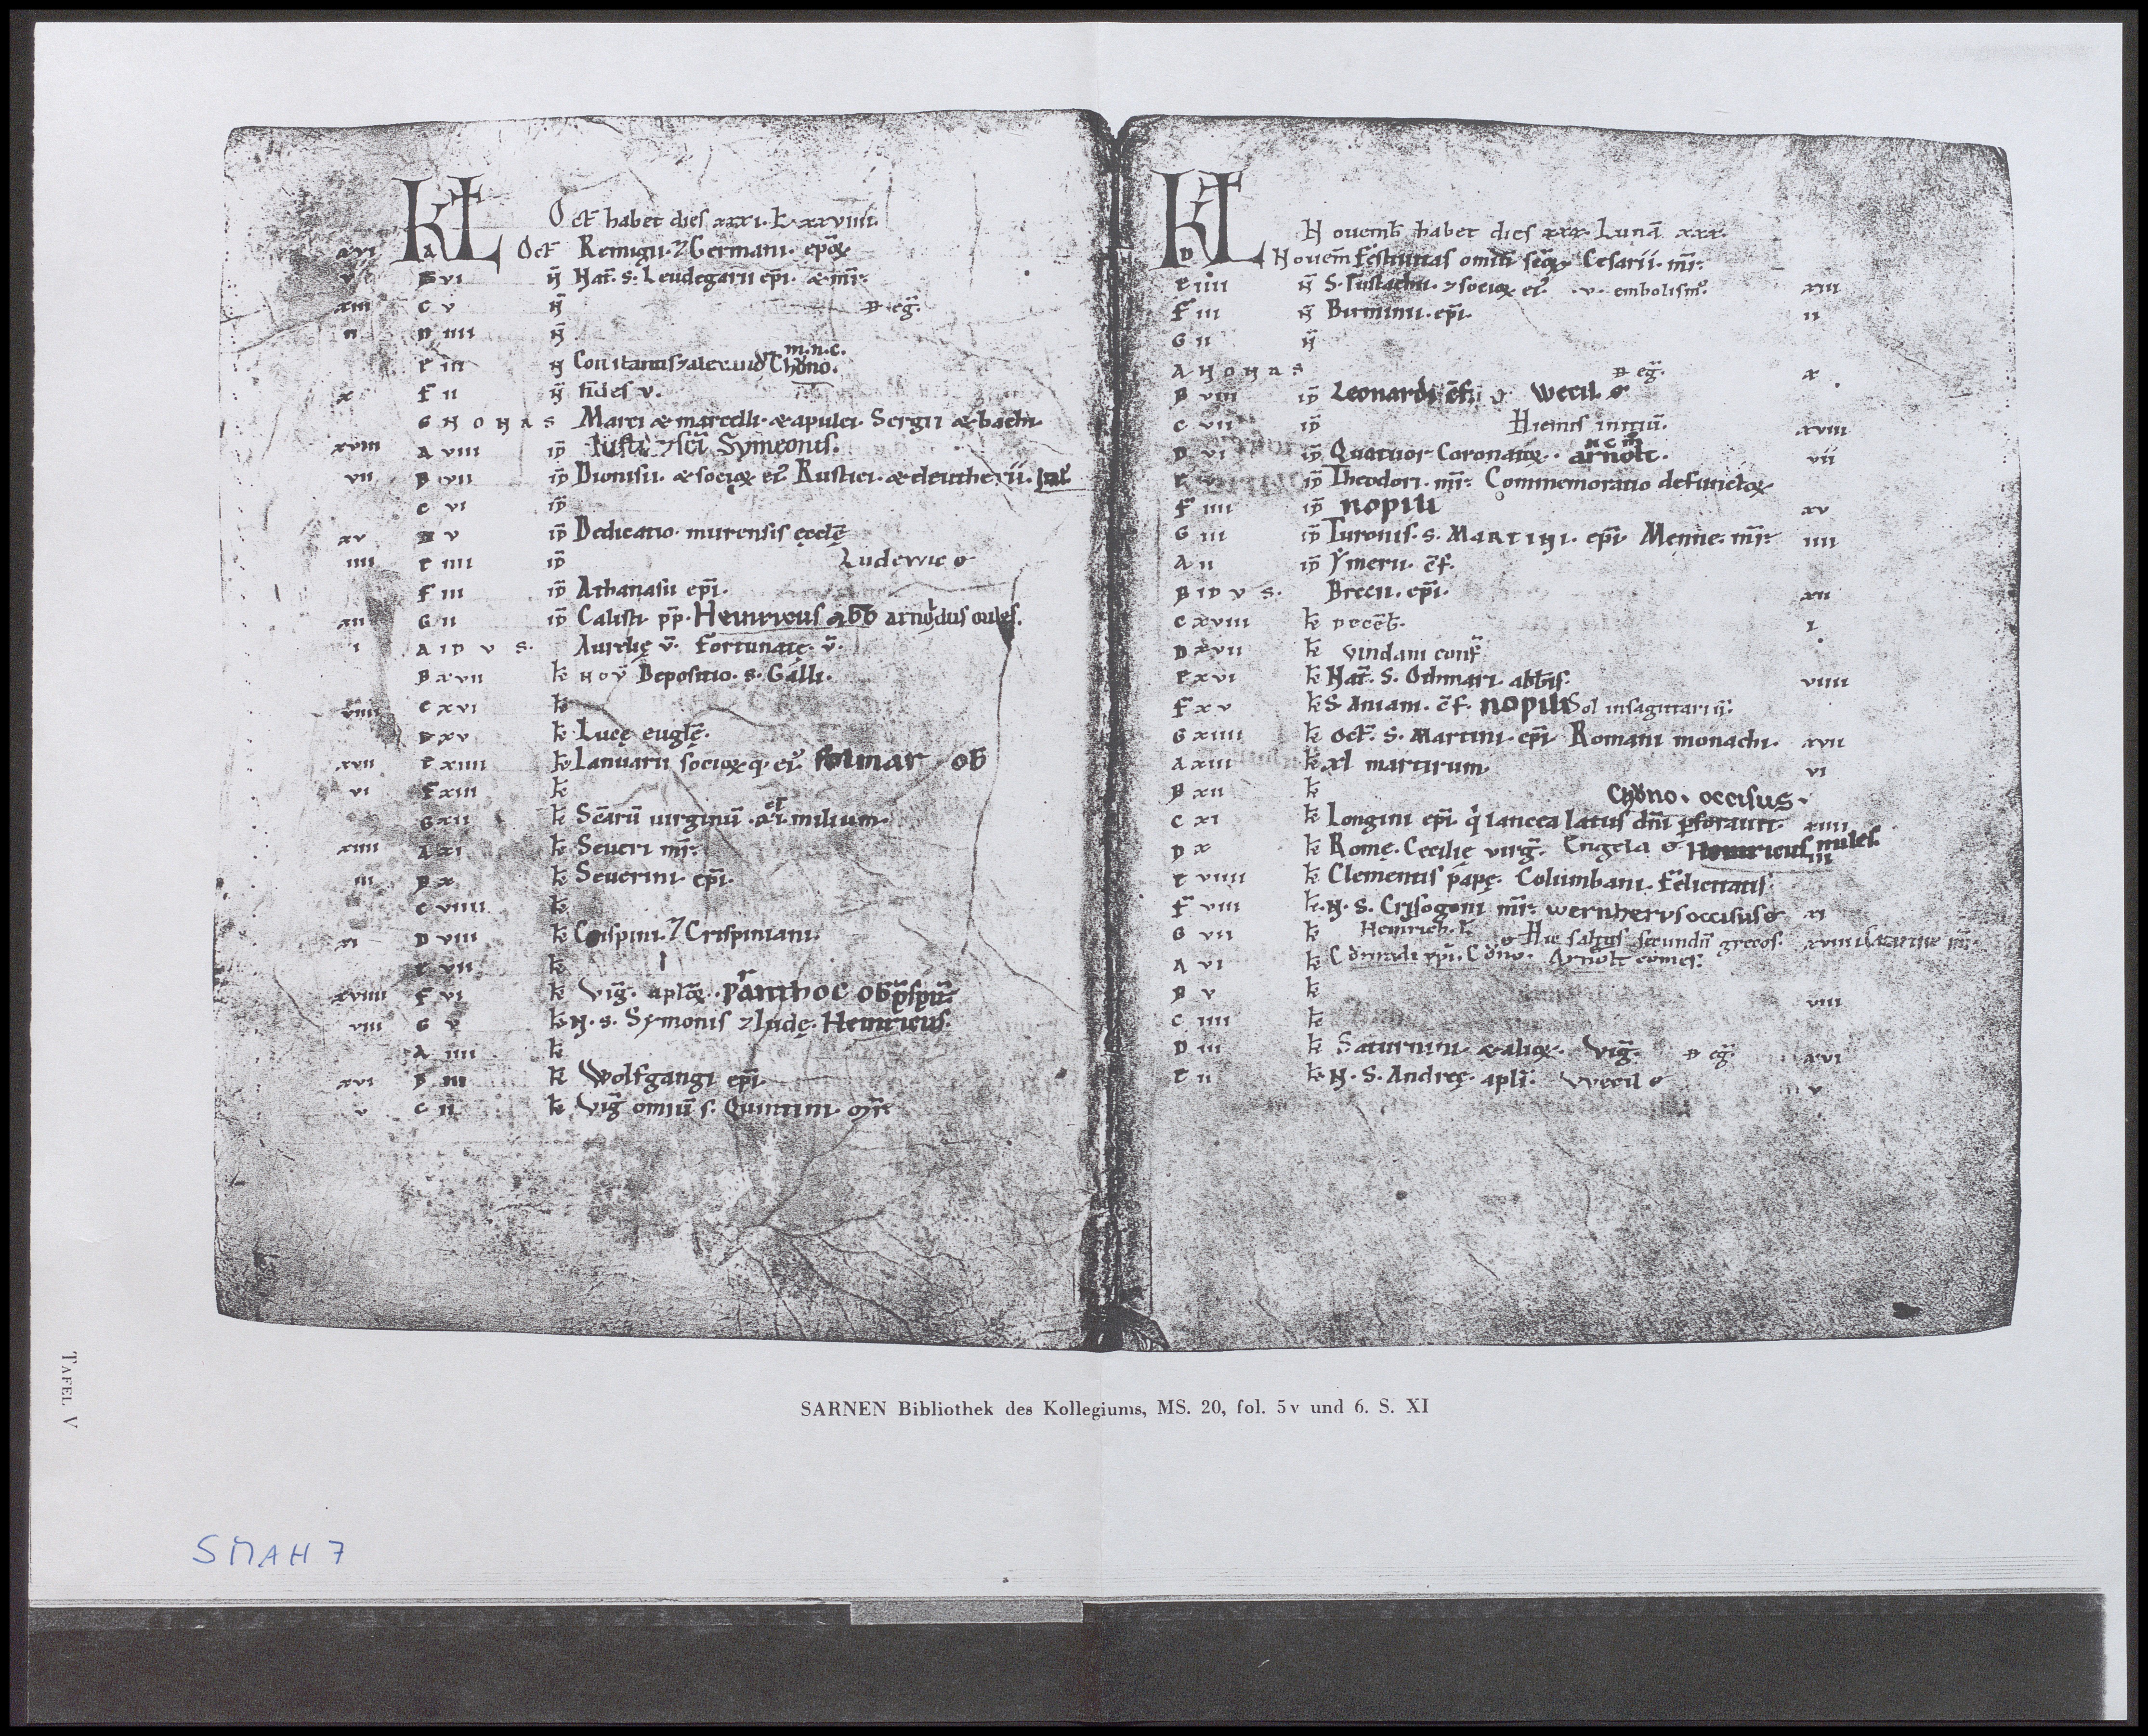 KL Oct̄ habet dies xxxi. L. xxviiii.
xvi A Oct̄ Remigii. ⁊ Germani. ep̄oꝝ.
v B vi N̄ Nat̄. s. Leudegarii ep̄i. & mr̄.
xiii C v N̄ D. eḡ.
ii D iiii N̄
E iii N̄ Chŏno. m.n.c.
x F ii N̄ fides v.
G NONAS Marci & marcelli. & apulei. Sergii & bachi.
xviii A viii ID̄ Symeonis.
vii B vii ID̄ Dionisii. & socioꝝ ei᷒ Rustici. & eleutherii.
C vi ID̄
xv D v ID̄ Dedicatio. murensis ęcclę̄
iiii E iiii ID̄ Ludewic o
F iii ID̄ Athanasii ep̄i.
xii G ii ID̄ Calisti pp̄. Heinricus abb
i A IDVS. Aurelię v̄. Fortunatę. v̄.
B xvii k̄ Nov̄ Depositio. s. Galli.
viiii C xvi k̄
D xv k̄ Lucę eugl̄ę.
xvii E xiiii k̄ Ianuarii socioꝝq. ei᷒. ob
vi F xiii k̄
G xii k̄ Sc̄arū uirginū. xi. milium.
xiiii A xi k̄ Seueri mr̄.
iii B x k̄ Seuerini ep̄i.
C viiii k̄
xi D viii k̄ Crispini. ⁊ Crispiniani.
E vii k̄
xviiii F vi k̄ Viḡ. apl̄oꝝ. ob
viii G v k̄ N. s. Symonis ⁊ Iudę. Heinricus.
A iiii k̄
xvi B iii k̄ Wolfgangi ep̄i
v C ii k̄ Viḡ omiū s. Quintini. mr̄.
KL Nouemb̄ habet dies xxx. Lunā xxx.
D Nouem̄ Festiuitas omiū sc̄oꝝ Cesarii. mr̄.
E iiii N̄ S. Eustachii. ⁊ socioꝝ ei᷒. .v. embolism᷒. xiii
F iii N̄ Birminii. ep̄i. ii
G ii N̄
A NONAS D eḡ. x
B viii ID̄ Leonardi c̄f. Wecil o
C vii ID̄ Hiemis initiū. xviii
D vi ID̄ Quatuor Coronatoꝝ. arnolt. vii
E v ID̄ Theodori. mr̄. Commemoratio defunctoꝝ
F iiii ID̄ xv
G iii ID̄ Turonis. s. MARTINI. ep̄i. Menne. mr̄. iiii
A ii ID̄ Ymerii. c̄f.
B IDVS. Breen. ep̄i. xii
C xviii k̄ Decēb. i
D xvii k̄ conf̄
E xvi k̄ Nat̄. S. Othmari. abb̄is. viiii
F xv k̄ S. Aniani. c̄f. Sol insagittariū.
G xiiii k̄ Oct̄. s. Martini. ep̄i Romani monachi. xvii
A xiii k̄ xl martirum. vi
B xii k̄ Chŏno. occisus.
C xi k̄ Longini ep̄i q lancea latus dn̄i pforauit. xiiii
D x k̄ Romę. Cecilię virḡ. Engela o Heinricus miles. iii
E viiii k̄ Clementis papę. Columbani. Felicitatis.
F viii k̄. N. S. Crisogoni mr̄. wernherus occisus o xi
G vii k̄ Heinrich. l. Hic saltus secundū grecos. xviiii
A vi k̄ Cŏno. Arnolt comes.
B v k̄ viii
C iiii k̄
D iii k̄ Saturnini & alioꝝ. Viḡ. D eḡ. xvi
E ii k̄ N. S. Andreę. apl̄i. Wecil o v
TAFEL V
SARNEN Bibliothek des Kollegiums, MS. 20, fol. 5v und 6. S. XI
SMAH7